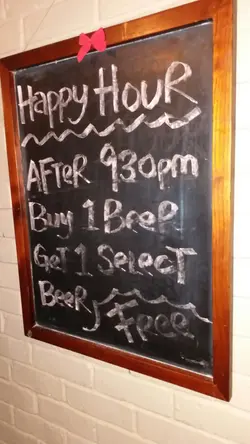 Happy Hour
After 930pm
Buy 1 Beer
Get 1 Select
Beer Free